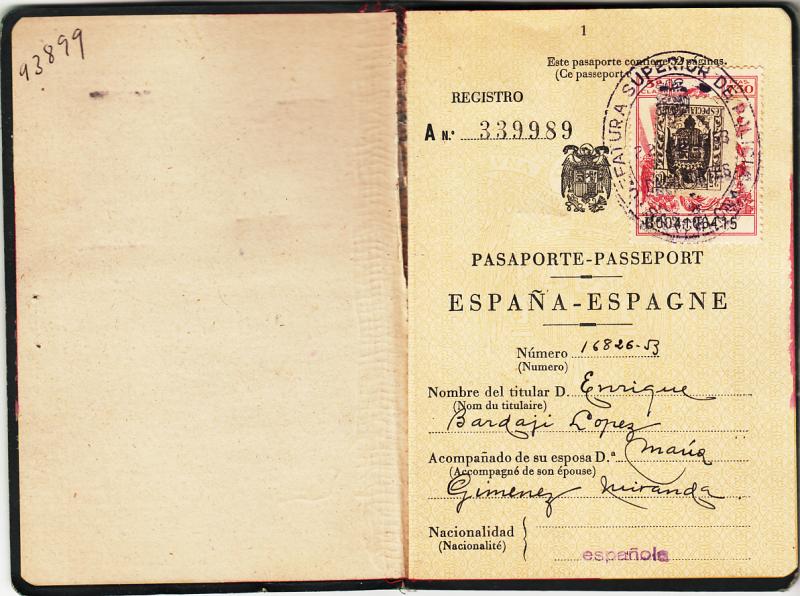 93899
1
Este pasaporte contiene 32 páginas.
(Ce passeport
REGISTRO
A N.º 339989
JEFATURA SUPERIOR DE POLICIA
B004100415
PASAPORTE-PASSEPORT
ESPAÑA-ESPAGNE
Número 16826-53
(Numero)
Nombre del titular D. Enrique
(Nom du titulaire)
Bardaji Lopez
Acompañado de su esposa D.ª María
(Accompagné de son épouse)
Gimenez Miranda
Nacionalidad
(Nacionalité)
española